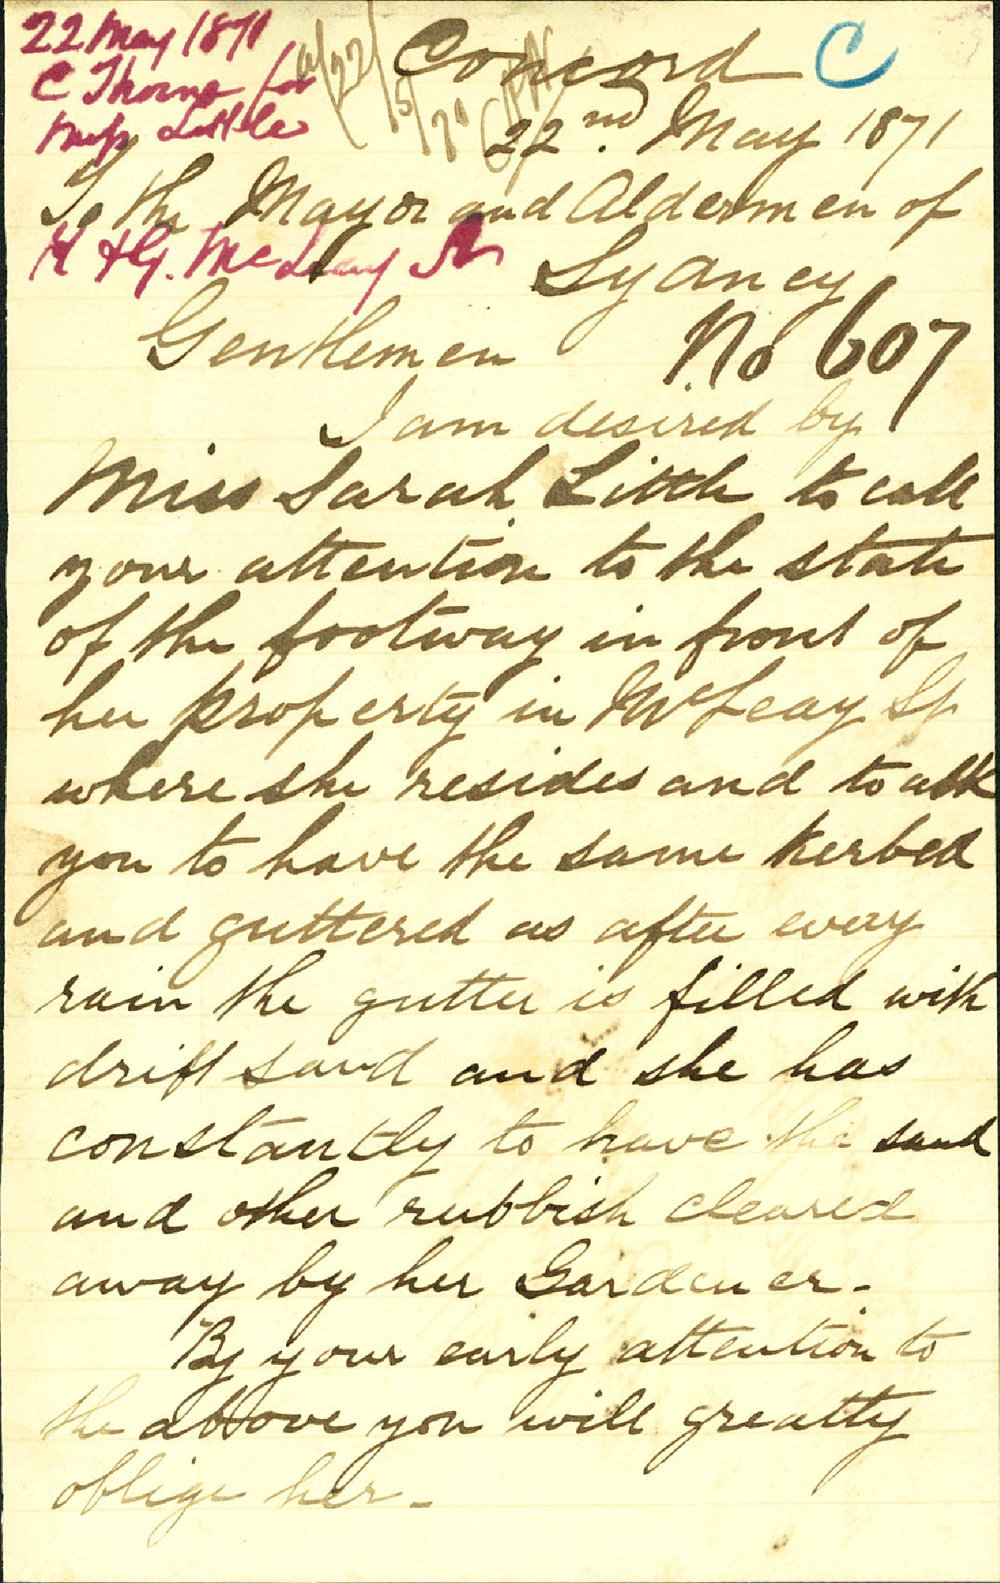 22 May 1871
C Thorne for
Miss Little
Concord C
22nd. May 1871
To the Mayor and Aldermen of
K & G. McLeay St
Sydney
Gentlemen
No 607
I am desired by
Miss Sarah Little to call
your attention to the state
of the footway in front of
her property in McLeay St
where she resides and to ask
you to have the same kerbed
and guttered as after every
rain the gutter is filled with
drift sand and she has
constantly to have the sand
and other rubbish cleared
away by her Gardener -
By your early attention to
the above you will greatly
oblige her -